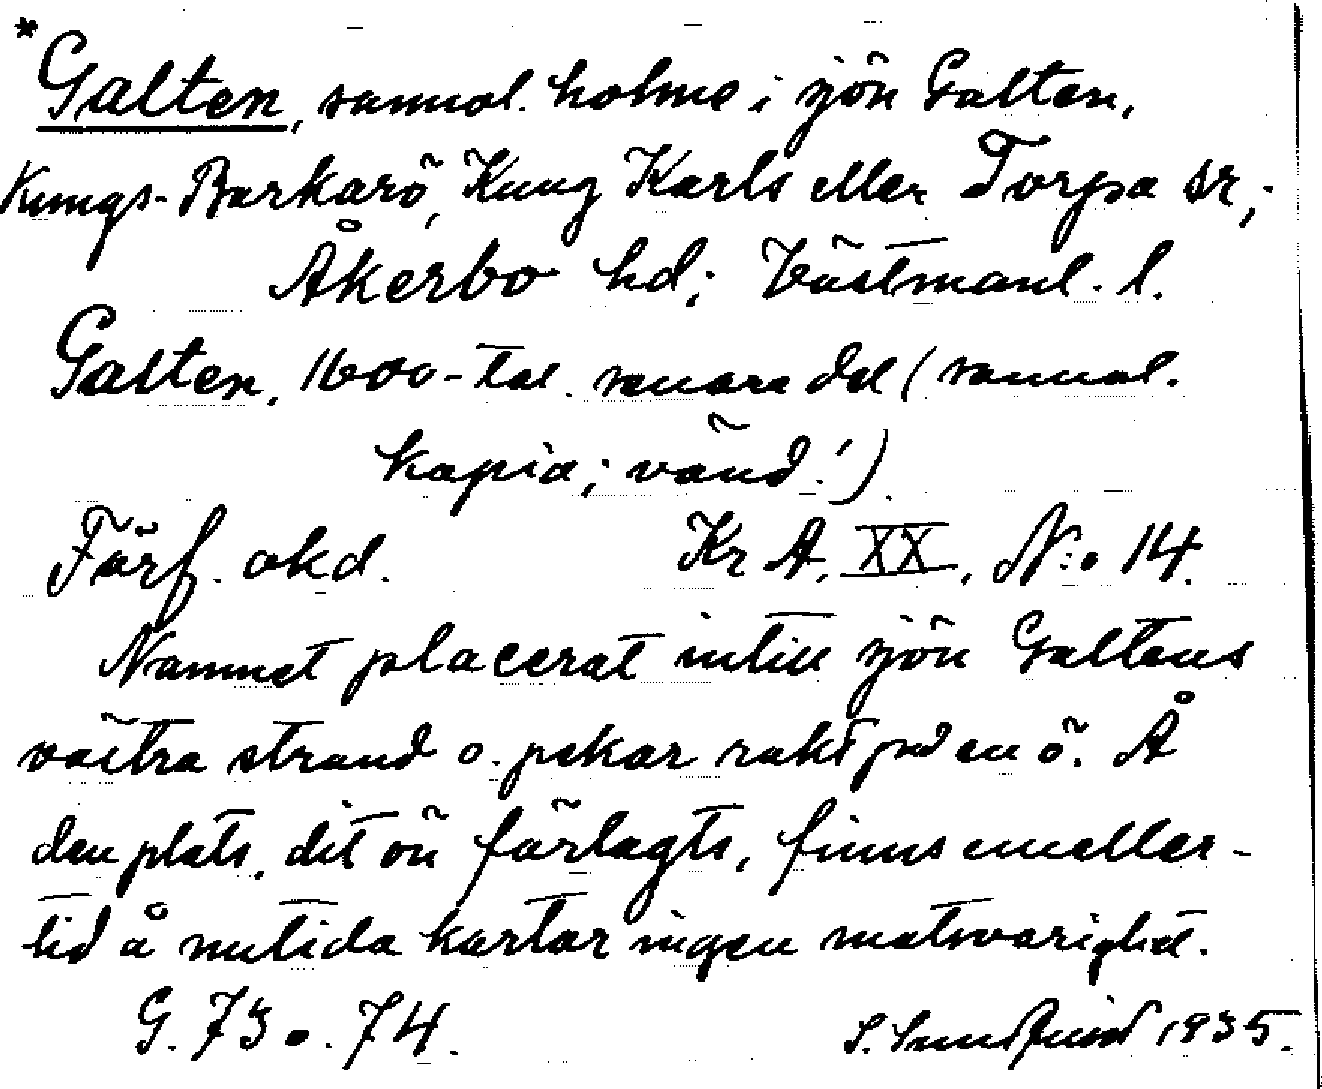 *Galten, sannol. holme i sjön Galten,
Kungs-Barkarö, Kung Karls eller Torpa sr;
Åkerbo hd; Västmanl. l.
Galten, 1600-tal. senare del (sannol.
kopia; vänd!)
Förf. okd. Kr A, XX, N:o 14.
Namnet placerat intill sjön Galtens
västra strand o. pekar rakt på en ö. Å
den plats, dit ön förlagts, finns emeller-
tid å nutida kartor ingen motsvarighet.
G. 73 o. 74. 1935.